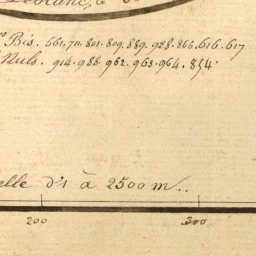 Bis. 561.70.801.809.889.928.866.616.617
Nuls. 914.988.962.963.964.854.
elle d'1 à 2500 m..
200 300